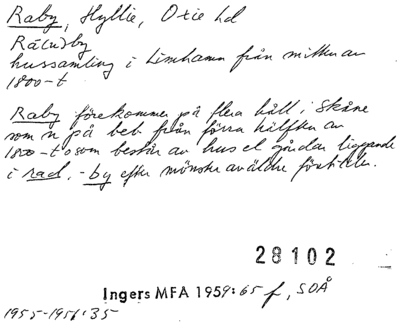 Raby, Hyllie, Oxie hd
Rá(u)by
hussamling i Limhamn från mitten av
1800-t
Raby förekommer på flera håll i Skåne
som n på beb från förra hälften av
1800-t o som består av hus el gårdar liggande
i rad. -by efter mönster av äldre förebilder.
28102
Ingers MFA 1959:65 f, SOÅ
1955-1956:35